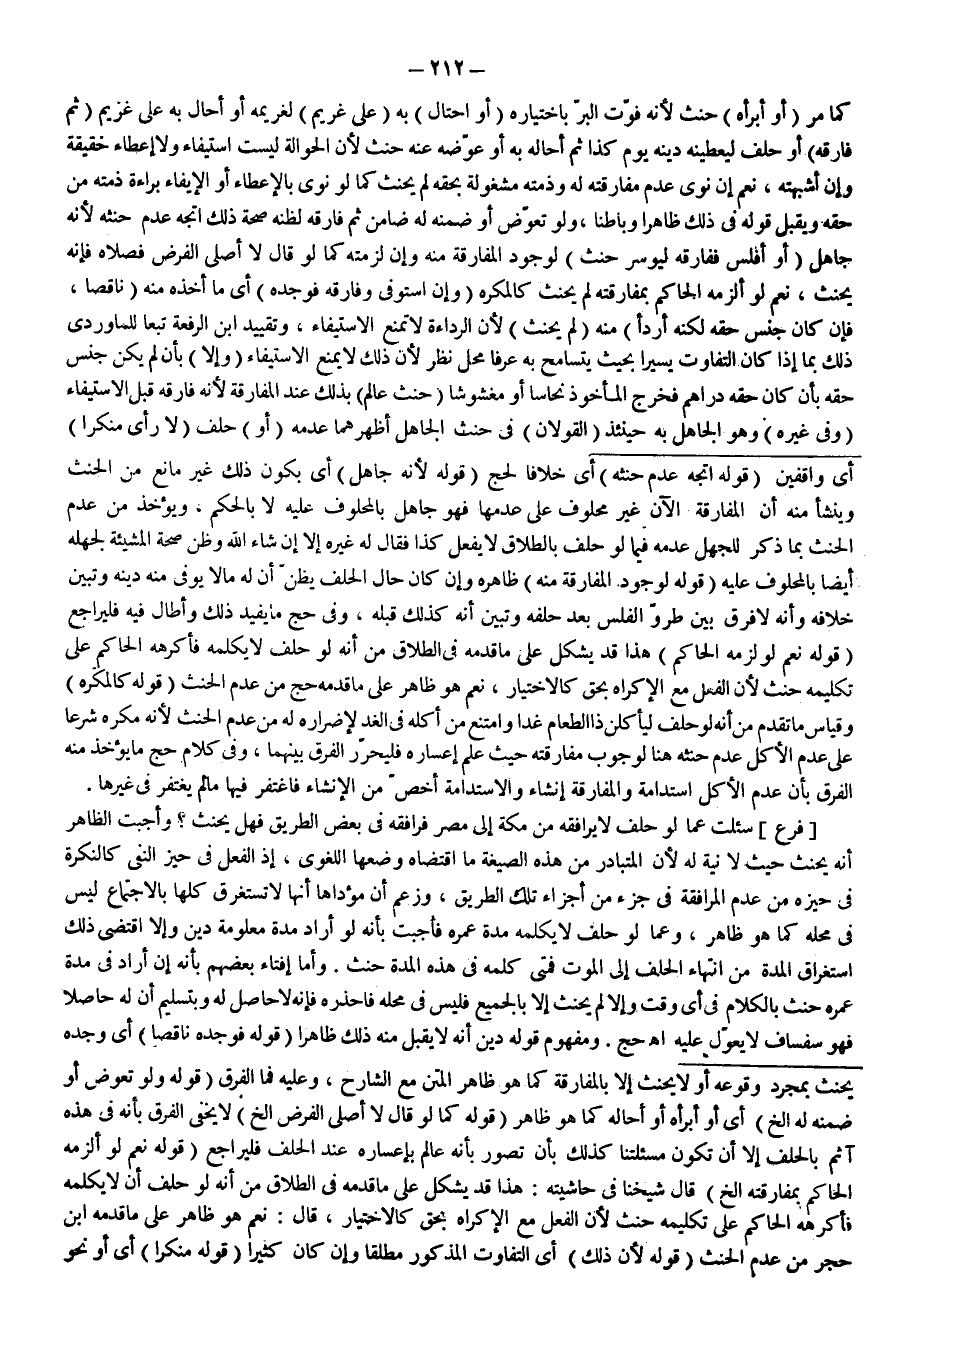 – ٢١٢ –
كما مر ( أو أبرأه ) حنث لأنه فوّت البرّ باختياره ( أو احتال ) به ( على غريم ) لغريمه أو أحال به على غريم ( ثم
فارقه) أو حلف ليعطينه دينه يوم كذا ثم أحاله به أو عوّضه عنه حنث لأن الحوالة ليست استيفاء ولا إعطاء حقيقة
وإن أشبهته ، نعم إن نوى عدم مفارقته له وذمته مشغولة بحقه لم يحنث كما لو نوى بالإعطاء أو الإيفاء براءة ذمته من
حقه ويقبل قوله فى ذلك ظاهرا وباطنا ، ولو تعوّض أو ضمنه له ضامن ثم فارقه لظنه صحة ذلك اتجه عدم حنثه لأنه
جاهل ( أو أفلس ففارقه ليوسر حنث ) لوجود المفارقة منه وإن لزمته كما لو قال لا أصلى الفرض فصلاه فإنه
يحنث ، نعم لو ألزمه الحاكم بمفارقته لم يحنث كالمكره ( وإن استوفى وفارقه فوجده ) أى ما أخذه منه ( ناقصا ،
فإن كان جنس حقه لكنه أردأ ) منه ( لم يحنث ) لأن الرداءة لاتمنع الاستيفاء ، وتقييد ابن الرفعة تبعا للماوردى
ذلك بما إذا كان التفاوت يسيرا بحيث يتسامح به عرفا محل نظر لأن ذلك لايمنع الاستيفاء ( وإلا ) بأن لم يكن جنس
حقه بأن كان حقه دراهم فخرج المأخوذ نحاسا أو مغشوشا ( حنث عالم) بذلك عند المفارقة لأنه فارقه قبل الاستيفاء
( وفى غيره ) وهو الجاهل به حينئذ ( القولان ) فى حنث الجاهل أظهرهما عدمه ( أو ) حلف ( لا رأى منكرا )
أى واقفين ( قوله اتجه عدم حنثه ) أى خلافا لحج ( قوله لأنه جاهل ) أى بكون ذلك غير مانع من الحنث
وينشأ منه أن المفارقة الآن غير محلوف على عدمها فهو جاهل بالمحلوف عليه لا بالحكم ، ويؤخذ من عدم
الحنث بما ذكر للجهل عدمه فيما لو حلف بالطلاق لايفعل كذا فقال له غيره إلا إن شاء الله وظن صحة المشيئة لجهله
أيضا بالمحلوف عليه ( قوله لوجود المفارقة منه ) ظاهره وإن كان حال الحلف يظنّ أن له مالا يوفى منه دينه وتبين
خلافه وأنه لافرق بين طروّ الفلس بعد حلفه وتبين أنه كذلك قبله ، وفى حج مايفيد ذلك وأطال فيه فليراجع
( قوله نعم لو لزمه الحاكم ) هذا قد يشكل على ماقدمه فى الطلاق من أنه لو حلف لايكلمه فأكرهه الحاكم على
تكليمه حنث لأن الفعل مع الإكراه بحق كالاختيار ، نعم هو ظاهر على ماقدمه حج من عدم الحنث ( قوله كالمكره )
وقياس ماتقدم من أنه لو حلف ليأكلن ذا الطعام غدا وامتنع من أكله فى الغد لإضراره له من عدم الحنث لأنه مكره شرعا
على عدم الأكل عدم حنثه هنا لوجوب مفارقته حيث علم إعساره فليحرّر الفرق بينهما ، وفى كلام حج مايؤخذ منه
الفرق بأن عدم الأكل استدامة والمفارقة إنشاء والاستدامة أخصّ من الإنشاء فاغتفر فيها مالم يغتفر فى غيرها .
[ فرع ] سئلت عما لو حلف لايرافقه من مكة إلى مصر فرافقه فى بعض الطريق فهل يحنث ؟ وأجبت الظاهر
أنه يحنث حيث لا نية له لأن المتبادر من هذه الصيغة ما اقتضاه وضعها اللغوى ، إذ الفعل فى حيز النفى كالنكرة
فى حيزه من عدم المرافقة فى جزء من أجزاء تلك الطريق ، وزعم أن مؤداها أنها لاتستغرق كلها بالاجتماع ليس
فى محله كما هو ظاهر ، وعما لو حلف لايكلمه مدة عمره فأجبت بأنه لو أراد مدة معلومة دين وإلا اقتضى ذلك
استغراق المدة من انتهاء الحلف إلى الموت فمتى كلمه فى هذه المدة حنث . وأما إفتاء بعضهم بأنه إن أراد فى مدة
عمره حنث بالكلام فى أى وقت وإلا لم يحنث إلا بالجميع فليس فى محله فاحذره فإنه لاحاصل له وبتسليم أن له حاصلا
فهو سفساف لايعوّل عليه اه حج . ومفهوم قوله دين أنه لايقبل منه ذلك ظاهرا ( قوله فوجده ناقصا ) أى وجده
يحنث بمجرد وقوعه أو لايحنث إلا بالمفارقة كما هو ظاهر المتن مع الشارح ، وعليه فما الفرق ( قوله ولو تعوض أو
ضمنه له الخ ) أى أو أبرأه أو أحاله كما هو ظاهر ( قوله كما لو قال لا أصلى الفرض الخ ) لايخفى الفرق بأنه فى هذه
آثم بالحلف إلا أن تكون مسئلتنا كذلك بأن تصور بأنه عالم بإعساره عند الحلف فليراجع ( قوله نعم لو ألزمه
الحاكم بمفارقته الخ ) قال شيخنا فى حاشيته : هذا قد يشكل على ماقدمه فى الطلاق من أنه لو حلف أن لايكلمه
فأكرهه الحاكم على تكليمه حنث لأن الفعل مع الإكراه بحق كالاختيار ، قال : نعم هو ظاهر على ماقدمه ابن
حجر من عدم الحنث ( قوله لأن ذلك ) أى التفاوت المذكور مطلقا وإن كان كثيرا ( قوله منكرا ) أى أو نحو